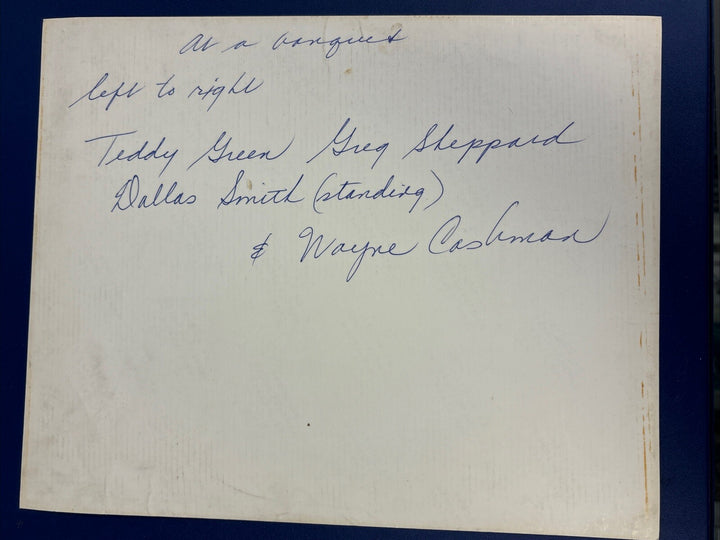 At a banquet
left to right
Teddy Green Greg Sheppard
Dallas Smith (standing)
& Wayne Cashman